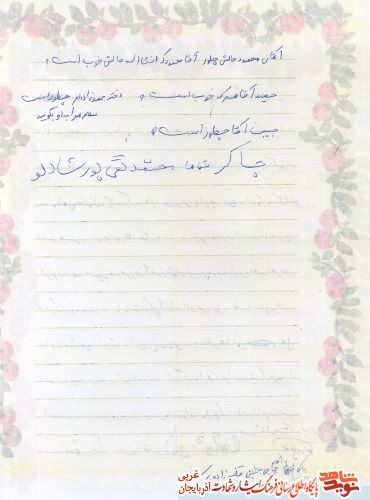 آقای محمود حالش چطور آقا محمود که انشااله حالش خوب است؟
حمید آقا هم که خوب است؟ دختر عمه زادهام چطور است
سلام مرا به او بگوید
حبیب آقا چطور است؟
چاکر شما محمد تقی پورشادلو
نوید شاهد
پایگاه اطلاع رسانی فرهنگ ایثار و شهادت آذربایجان غربی